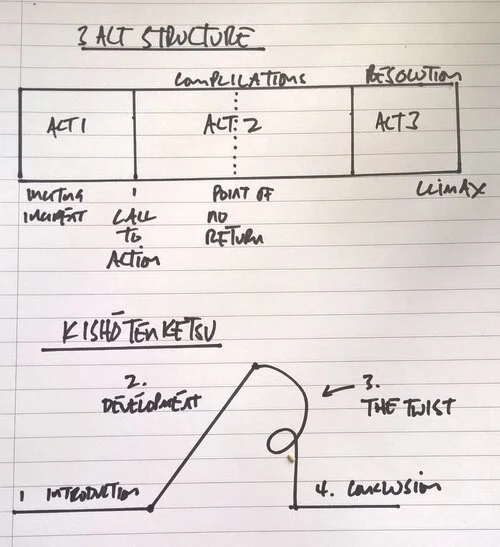 3 ACT STRUCTURE
COMPLICATIONS RESOLUTION
ACT 1 ACT 2 ACT 3
INCITING INCIDENT
CALL TO ACTION
POINT OF NO RETURN
CLIMAX
KISHŌTENKETSU
2. DEVELOPMENT
3. THE TWIST
1 INTRODUCTION
4. CONCLUSION